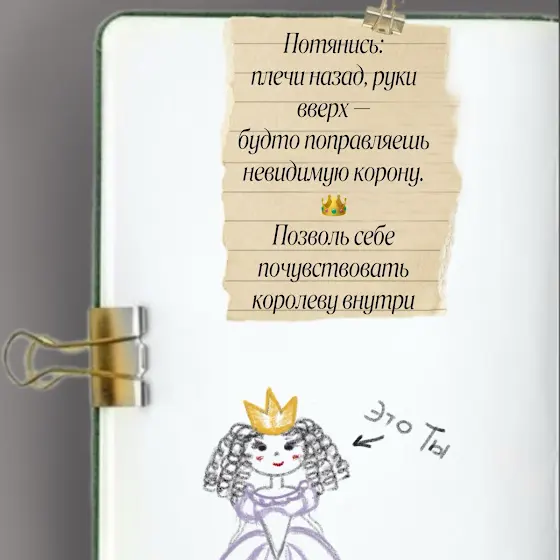 Потянись:
плечи назад, руки
вверх —
будто поправляешь
невидимую корону.
👑
Позволь себе
почувствовать
королеву внутри
Это Ты